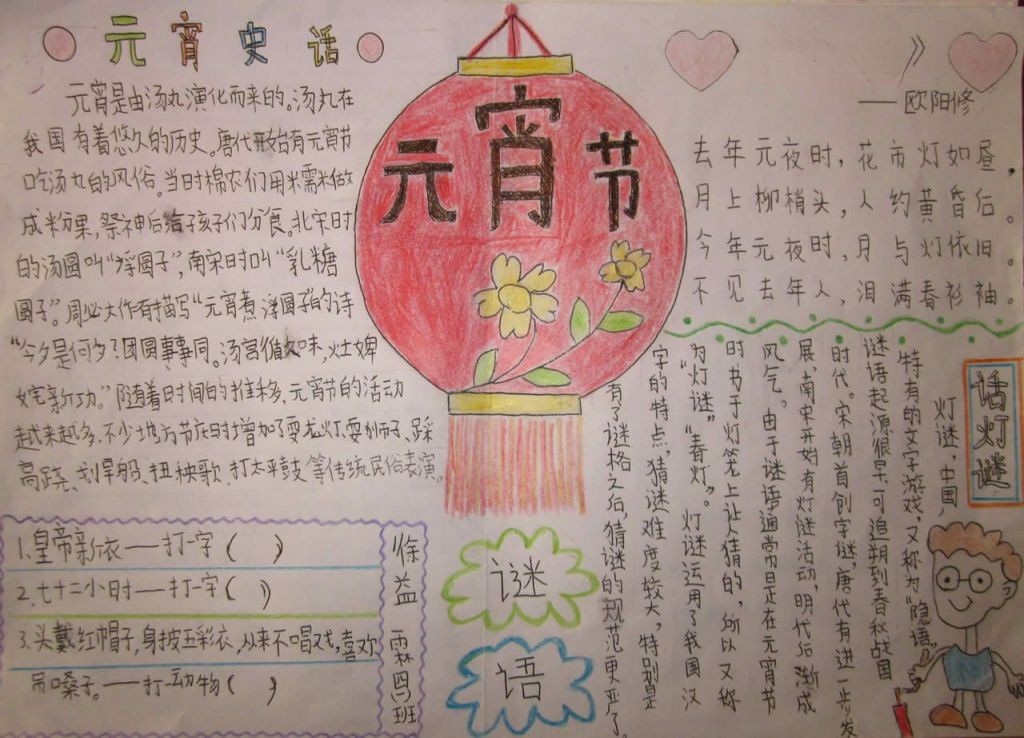 元宵史话
元宵是由汤丸演化而来的。汤丸在
我国有着悠久的历史。唐代开始有元宵节
吃汤丸的风俗。当时棉农们用米需米做
成半分果,祭神后给孩子们分食。北宋时
的汤圆叫“浮圆子”,南宋时叫“乳糖
圆子”。周必大作有描写“元宵煮浮圆子”的诗
“今夕是何夕?团圆事事同。汤官循旧味,灶婢
诧新功。”随着时间的推移,元宵节的活动
越来越多,不少地方节庆时增加了耍龙灯、耍狮子、踩
高跷、划旱船、扭秧歌、打太平鼓等传统民俗表演。
元宵节
》
——欧阳修
去年元夜时,花市灯如昼,
月上柳梢头,人约黄昏后。
今年元夜时,月与灯依旧
不见去年人,泪满春衫袖。
话灯谜
灯谜,中国,
特有的文字游戏,又称为“隐语”。
谜语起源很早,可追朔到春秋战国
时代。宋朝首创字谜,唐代有进一步发
展,南宋开始有灯谜活动,明代后渐成
风气。由于谜语通常日是在元宵节
时书于灯笼上让人猜的,所以又称
为“灯谜”“春灯”。灯谜运用了我国汉
字的特点,猜谜难度较大,特别是
有了谜格之后,猜谜的规范更严了。
1.皇帝新衣——打一字( )
2.七十二小时——打一字( )
3.头戴红帽子,身披五彩衣,从来不唱戏,喜欢
吊嗓子。——打一动物( )
徐益霖 四班
谜
语